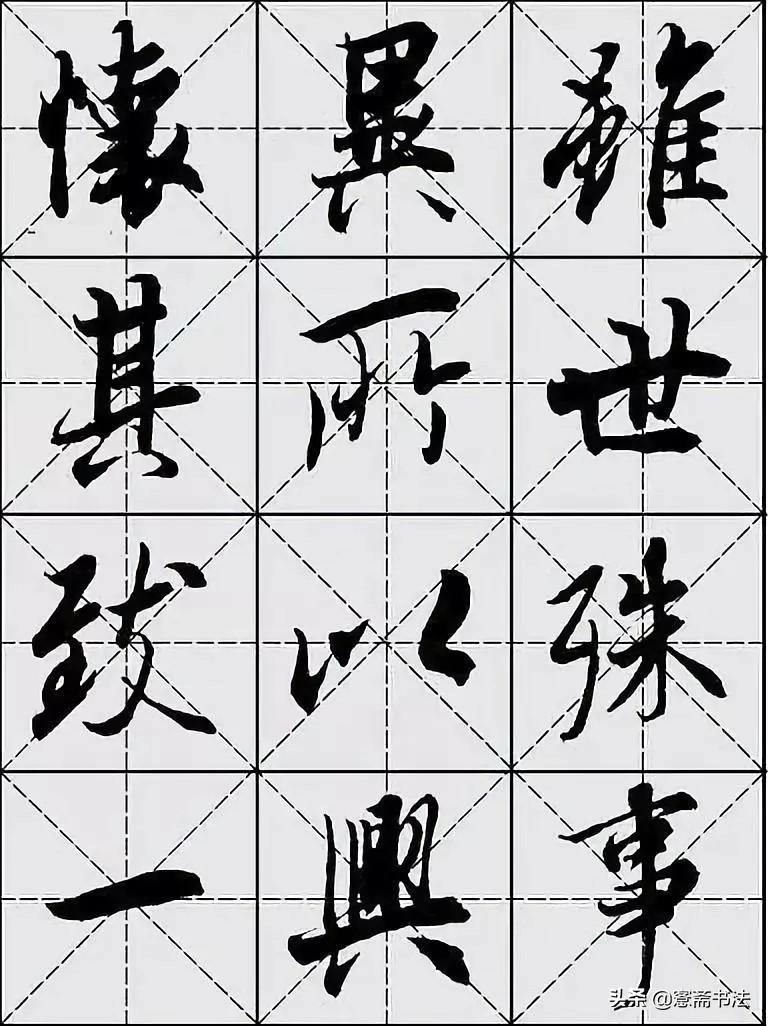 雖世殊事
異所以興
懷其致一
头条@寋斋书法